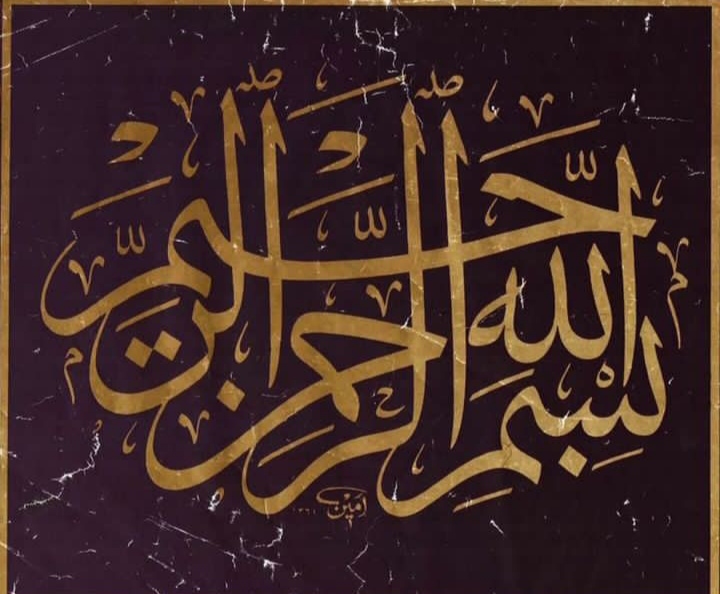 بِسْمِ اللّٰهِ الرَّحْمٰنِ الرَّحِيمِ
أمين